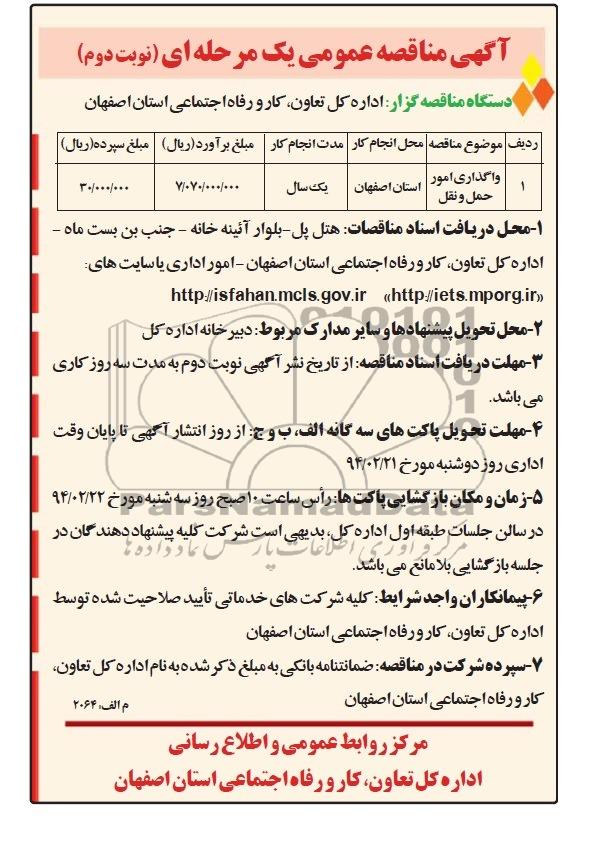 آگهی مناقصه عمومی یک مرحله ای (نوبت دوم)
دستگاه مناقصه گزار: اداره کل تعاون، کار و رفاه اجتماعی استان اصفهان
ردیف موضوع مناقصه محل انجام کار مدت انجام کار مبلغ برآورد (ریال) مبلغ سپرده (ریال)
۱ واگذاری امور حمل و نقل استان اصفهان یک سال ۷/۰۷۰/۰۰۰/۰۰۰ ۳۰/۰۰۰/۰۰۰
۱-محل دریافت اسناد مناقصات: هتل پل-بلوار آئینه خانه - جنب بن بست ماه -
اداره کل تعاون، کار و رفاه اجتماعی استان اصفهان - امور اداری یا سایت های:
«http://iets.mporg.ir» http://isfahan.mcls.gov.ir
۲-محل تحویل پیشنهادها و سایر مدارک مربوط: دبیرخانه اداره کل
۳-مهلت دریافت اسناد مناقصه: از تاریخ نشر آگهی نوبت دوم به مدت سه روز کاری
می باشد.
۴-مهلت تحویل پاکت های سه گانه الف، ب و ج: از روز انتشار آگهی تا پایان وقت
اداری روز دوشنبه مورخ ۹۴/۰۲/۲۱
۵-زمان و مکان بازگشایی پاکت ها: رأس ساعت ۱۰ صبح روز سه شنبه مورخ ۹۴/۰۲/۲۲
در سالن جلسات طبقه اول اداره کل، بدیهی است شرکت کلیه پیشنهاد دهندگان در
جلسه بازگشایی بلامانع می باشد.
۶-پیمانکاران واجد شرایط: کلیه شرکت های خدماتی تأیید صلاحیت شده توسط
اداره کل تعاون، کار و رفاه اجتماعی استان اصفهان
۷-سپرده شرکت در مناقصه: ضمانتنامه بانکی به مبلغ ذکر شده به نام اداره کل تعاون،
کار و رفاه اجتماعی استان اصفهان
م الف: ۲۰۶۴
مرکز روابط عمومی و اطلاع رسانی
اداره کل تعاون، کار و رفاه اجتماعی استان اصفهان
ParsNamadData
مرکز فرآوری اطلاعات پارس نماد داده ها